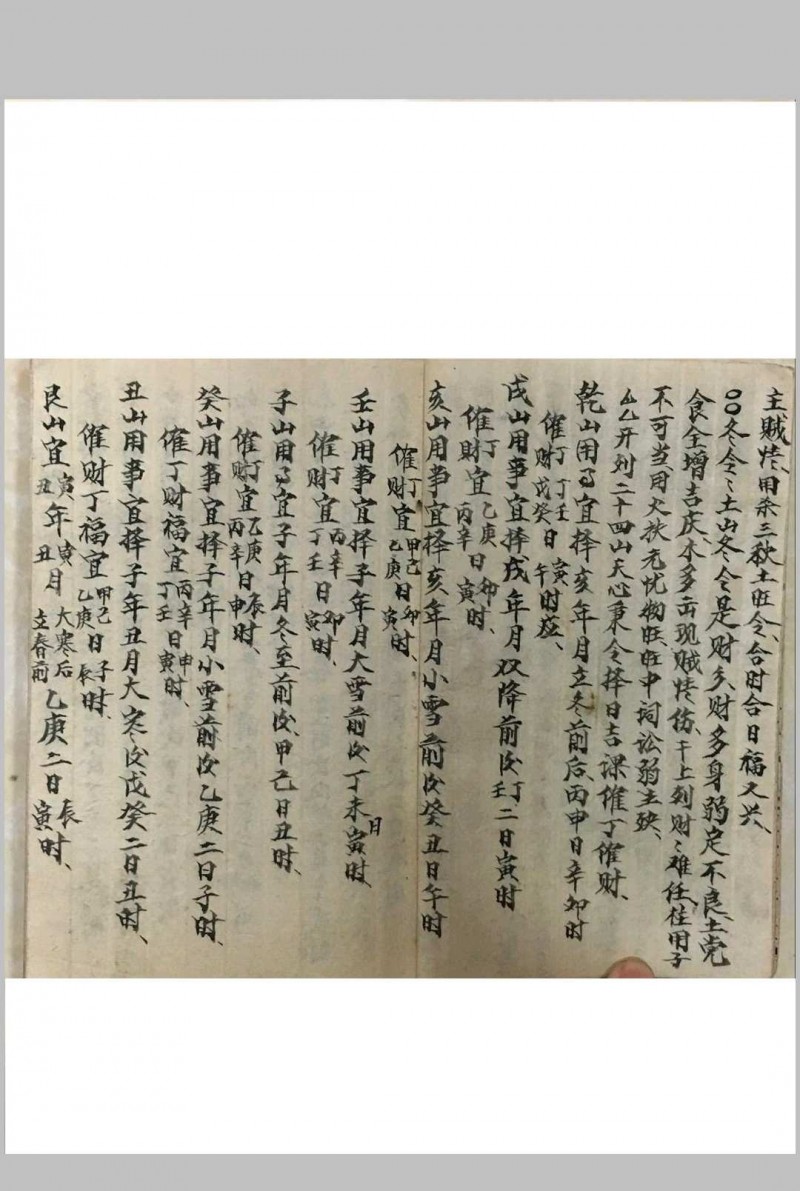 主贼㤞、用杀三秋土旺令、合时合日福又兴、
〇〇冬令〻土山冬令是财乡、财多身弱定不良、土党
食全增吉庆、木多击现贼㤞伤、干上列财〻难任、往用子
不可当、用火扶元忧物旺、旺中词讼弱主殃、
厶厶开列二十四山天心秉令择日吉课催丁催财、
乾山用事宜择亥年月立冬前后、丙申日辛卯时
催丁催财丁壬戊癸日寅午时应、
戌山用事宜择戌年月双降前后壬丁二日寅时
催丁催财宜乙庚丙辛日卯寅时、
亥山用事宜择亥年月小雪前后癸丑日午时
催丁催财宜甲己乙庚日卯寅时、
壬山用事宜择子年月大雪前后丁未日寅时、
催丁催财宜丙辛丁壬日卯寅时、
子山用事宜子年月冬至前后、甲己日丑时、
催丁催财宜乙庚丙辛日辰申时、
癸山用事宜择子年月小雪前后乙庚二日子时、
催丁财福宜丙辛丁壬日申寅时、
丑山用事宜择子年丑月大寒后戊癸二日丑时、
催财丁福宜甲己乙庚日子辰时、
艮山宜寅丑年寅丑月大寒后立春前乙庚二日辰寅时、